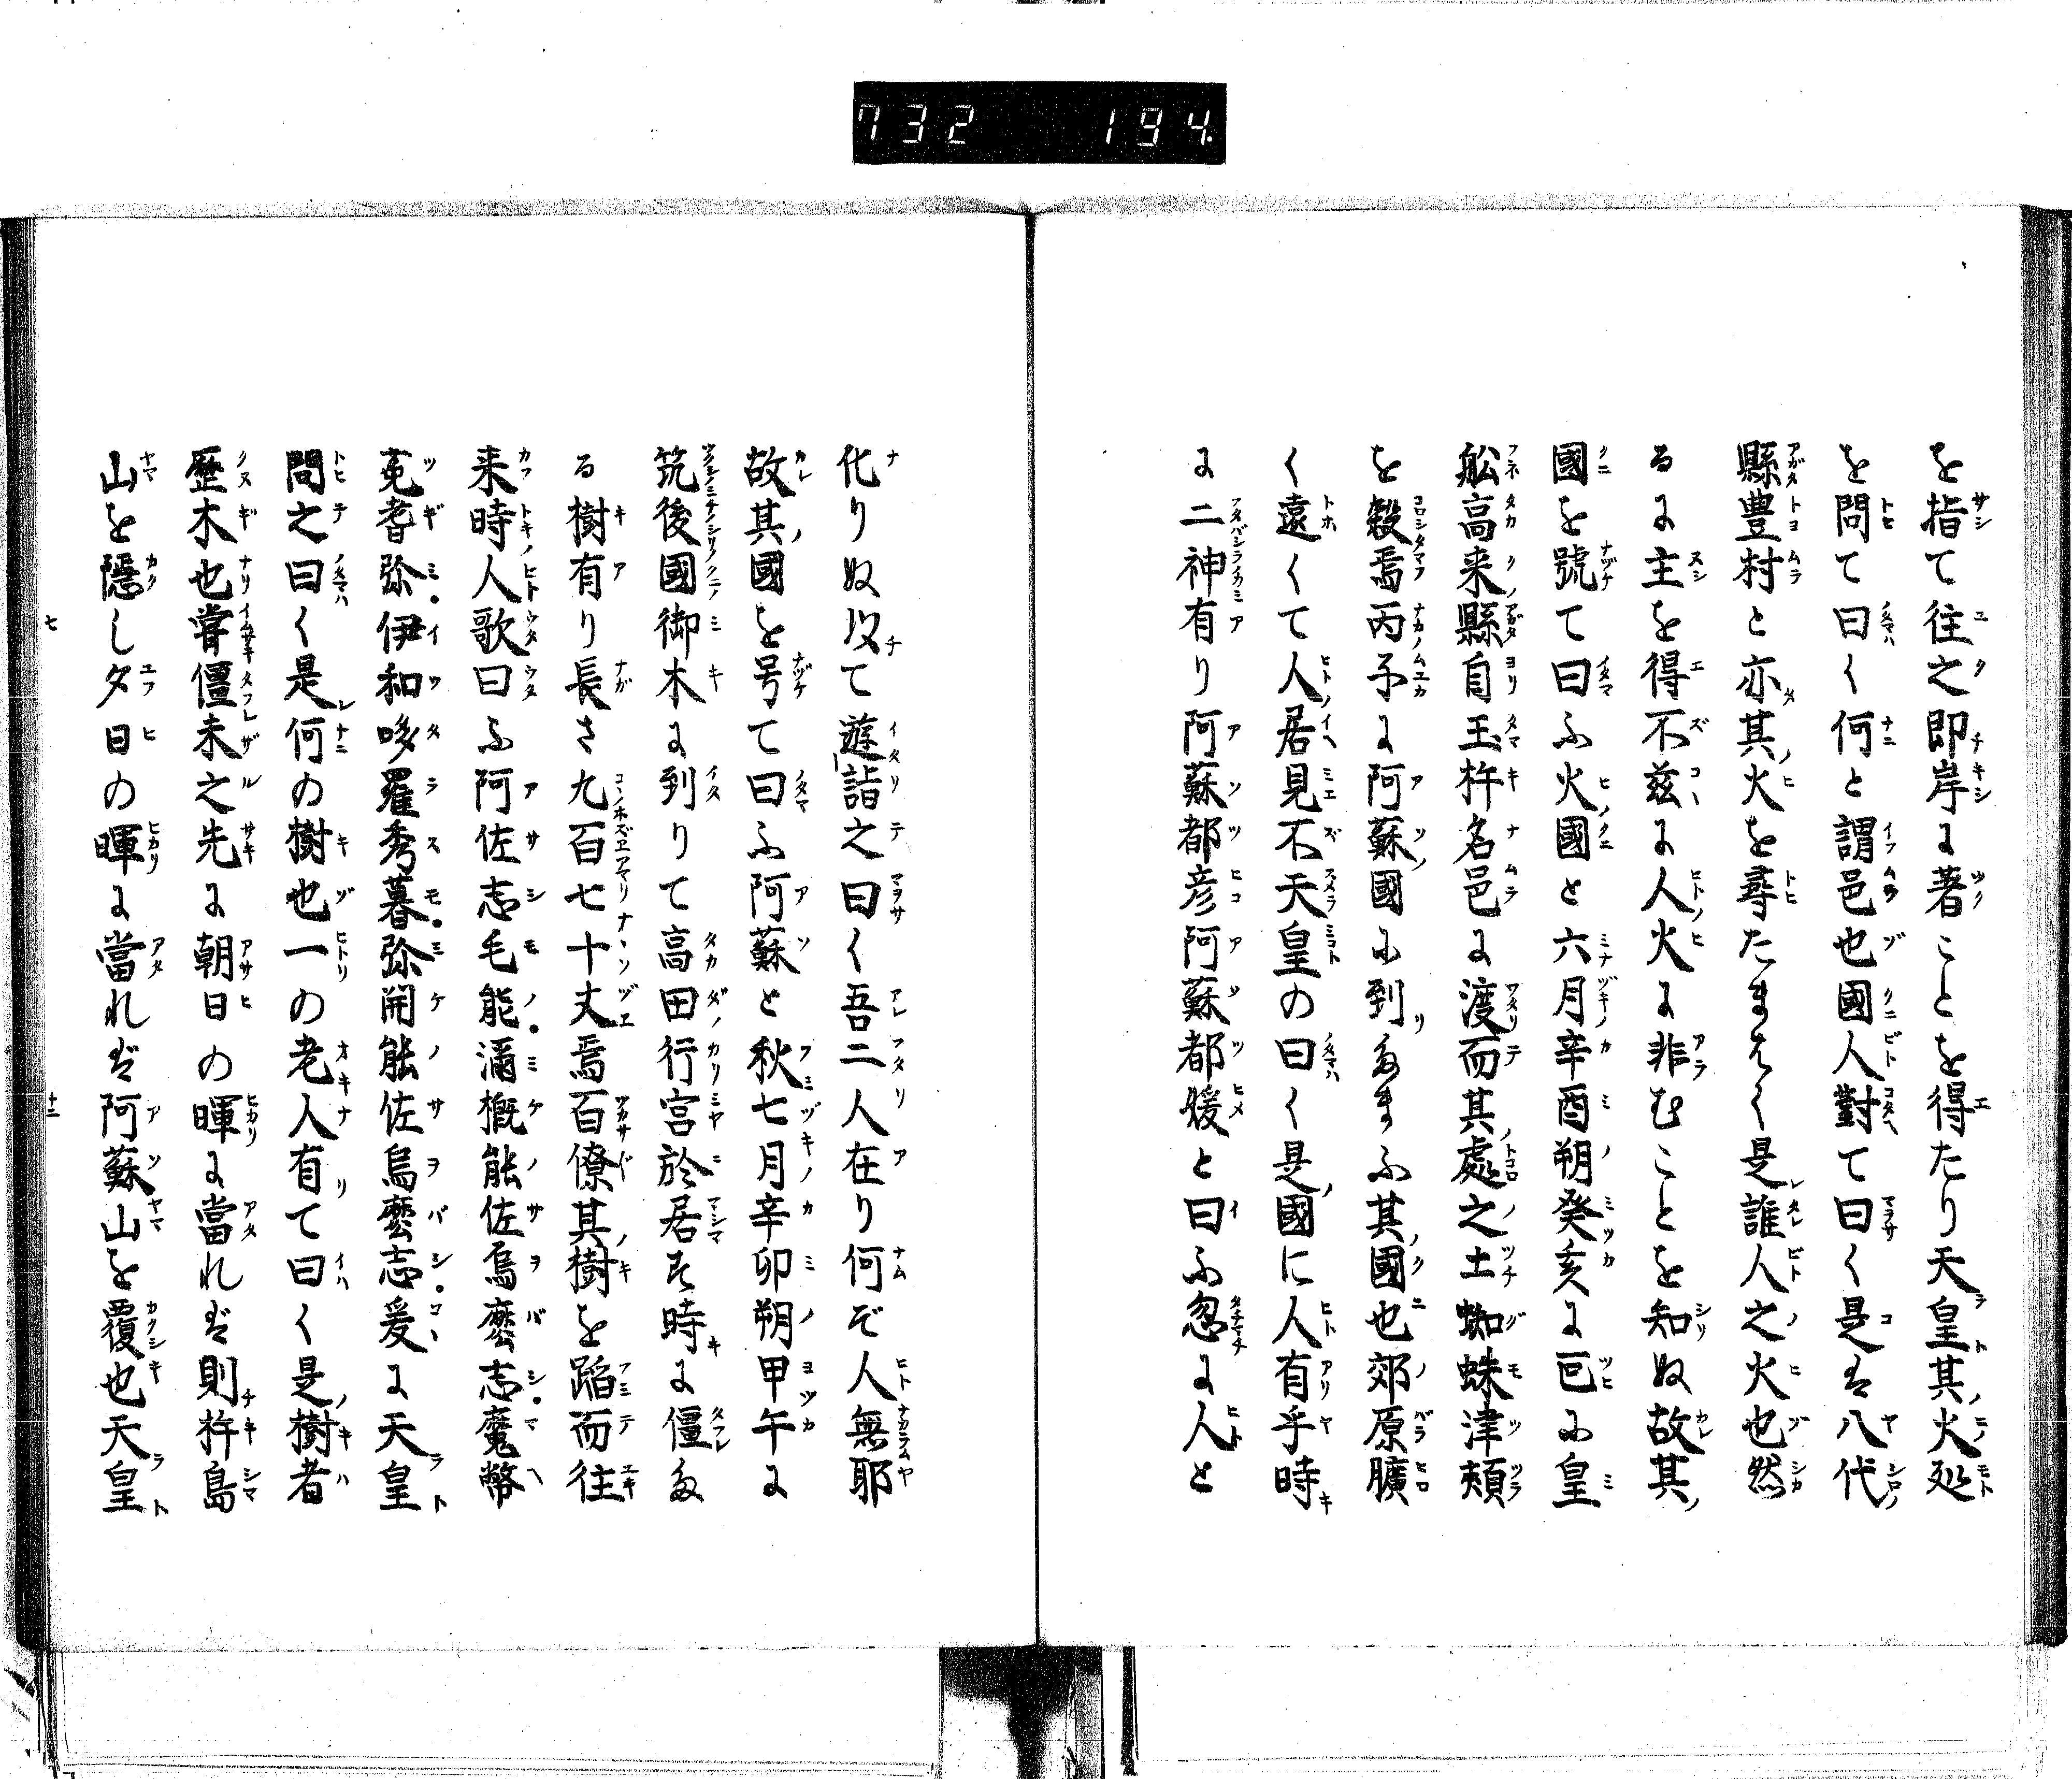 732 194
を指て往之即岸に著ことを得たり天皇其火処
を問て曰く何と謂邑也國人對て曰く是は八代
縣豊村と亦其火を尋たまはく是誰人之火也然
るに主を得不茲に人火に非むことを知ぬ故其
國を號て曰ふ火國と六月辛酉朔癸亥に已に皇
舩高来縣自玉杵名邑に渡而其處之土蜘蛛津頬
を殺焉丙子に阿蘇國に到たまふ其國也郊原曠
く遠くて人居見不天皇の曰く是國に人有乎時
に二神有り阿蘇都彦阿蘇都媛と曰ふ忽に人と
化りぬ以て遊詣之曰く吾二人在り何ぞ人無耶
故其國を号て曰ふ阿蘇と秋七月辛卯朔甲午に
筑後國御木に到りて高田行宮於居す時に僵た
る樹有り長さ九百七十丈焉百僚其樹を蹈而往
来時人歌曰ふ阿佐志毛能瀰概能佐烏麼志魔幣
菟耆弥伊和哆羅秀暮弥開能佐烏麼志爰に天皇
問之曰く是何の樹也一の老人有て曰く是樹者
歴木也甞僵未之先に朝日の暉に當れば則杵島
山を隠し夕日の暉に當れば阿蘇山を覆也天皇
七 十二